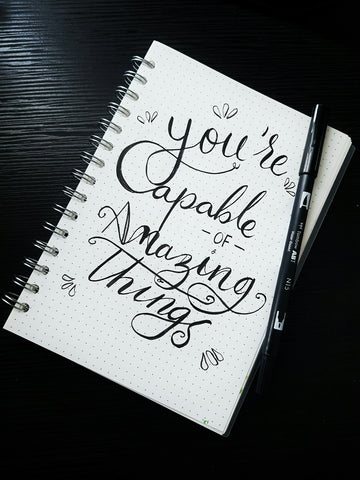 you're
Capable
-OF-
Amazing
things
ABT
N15